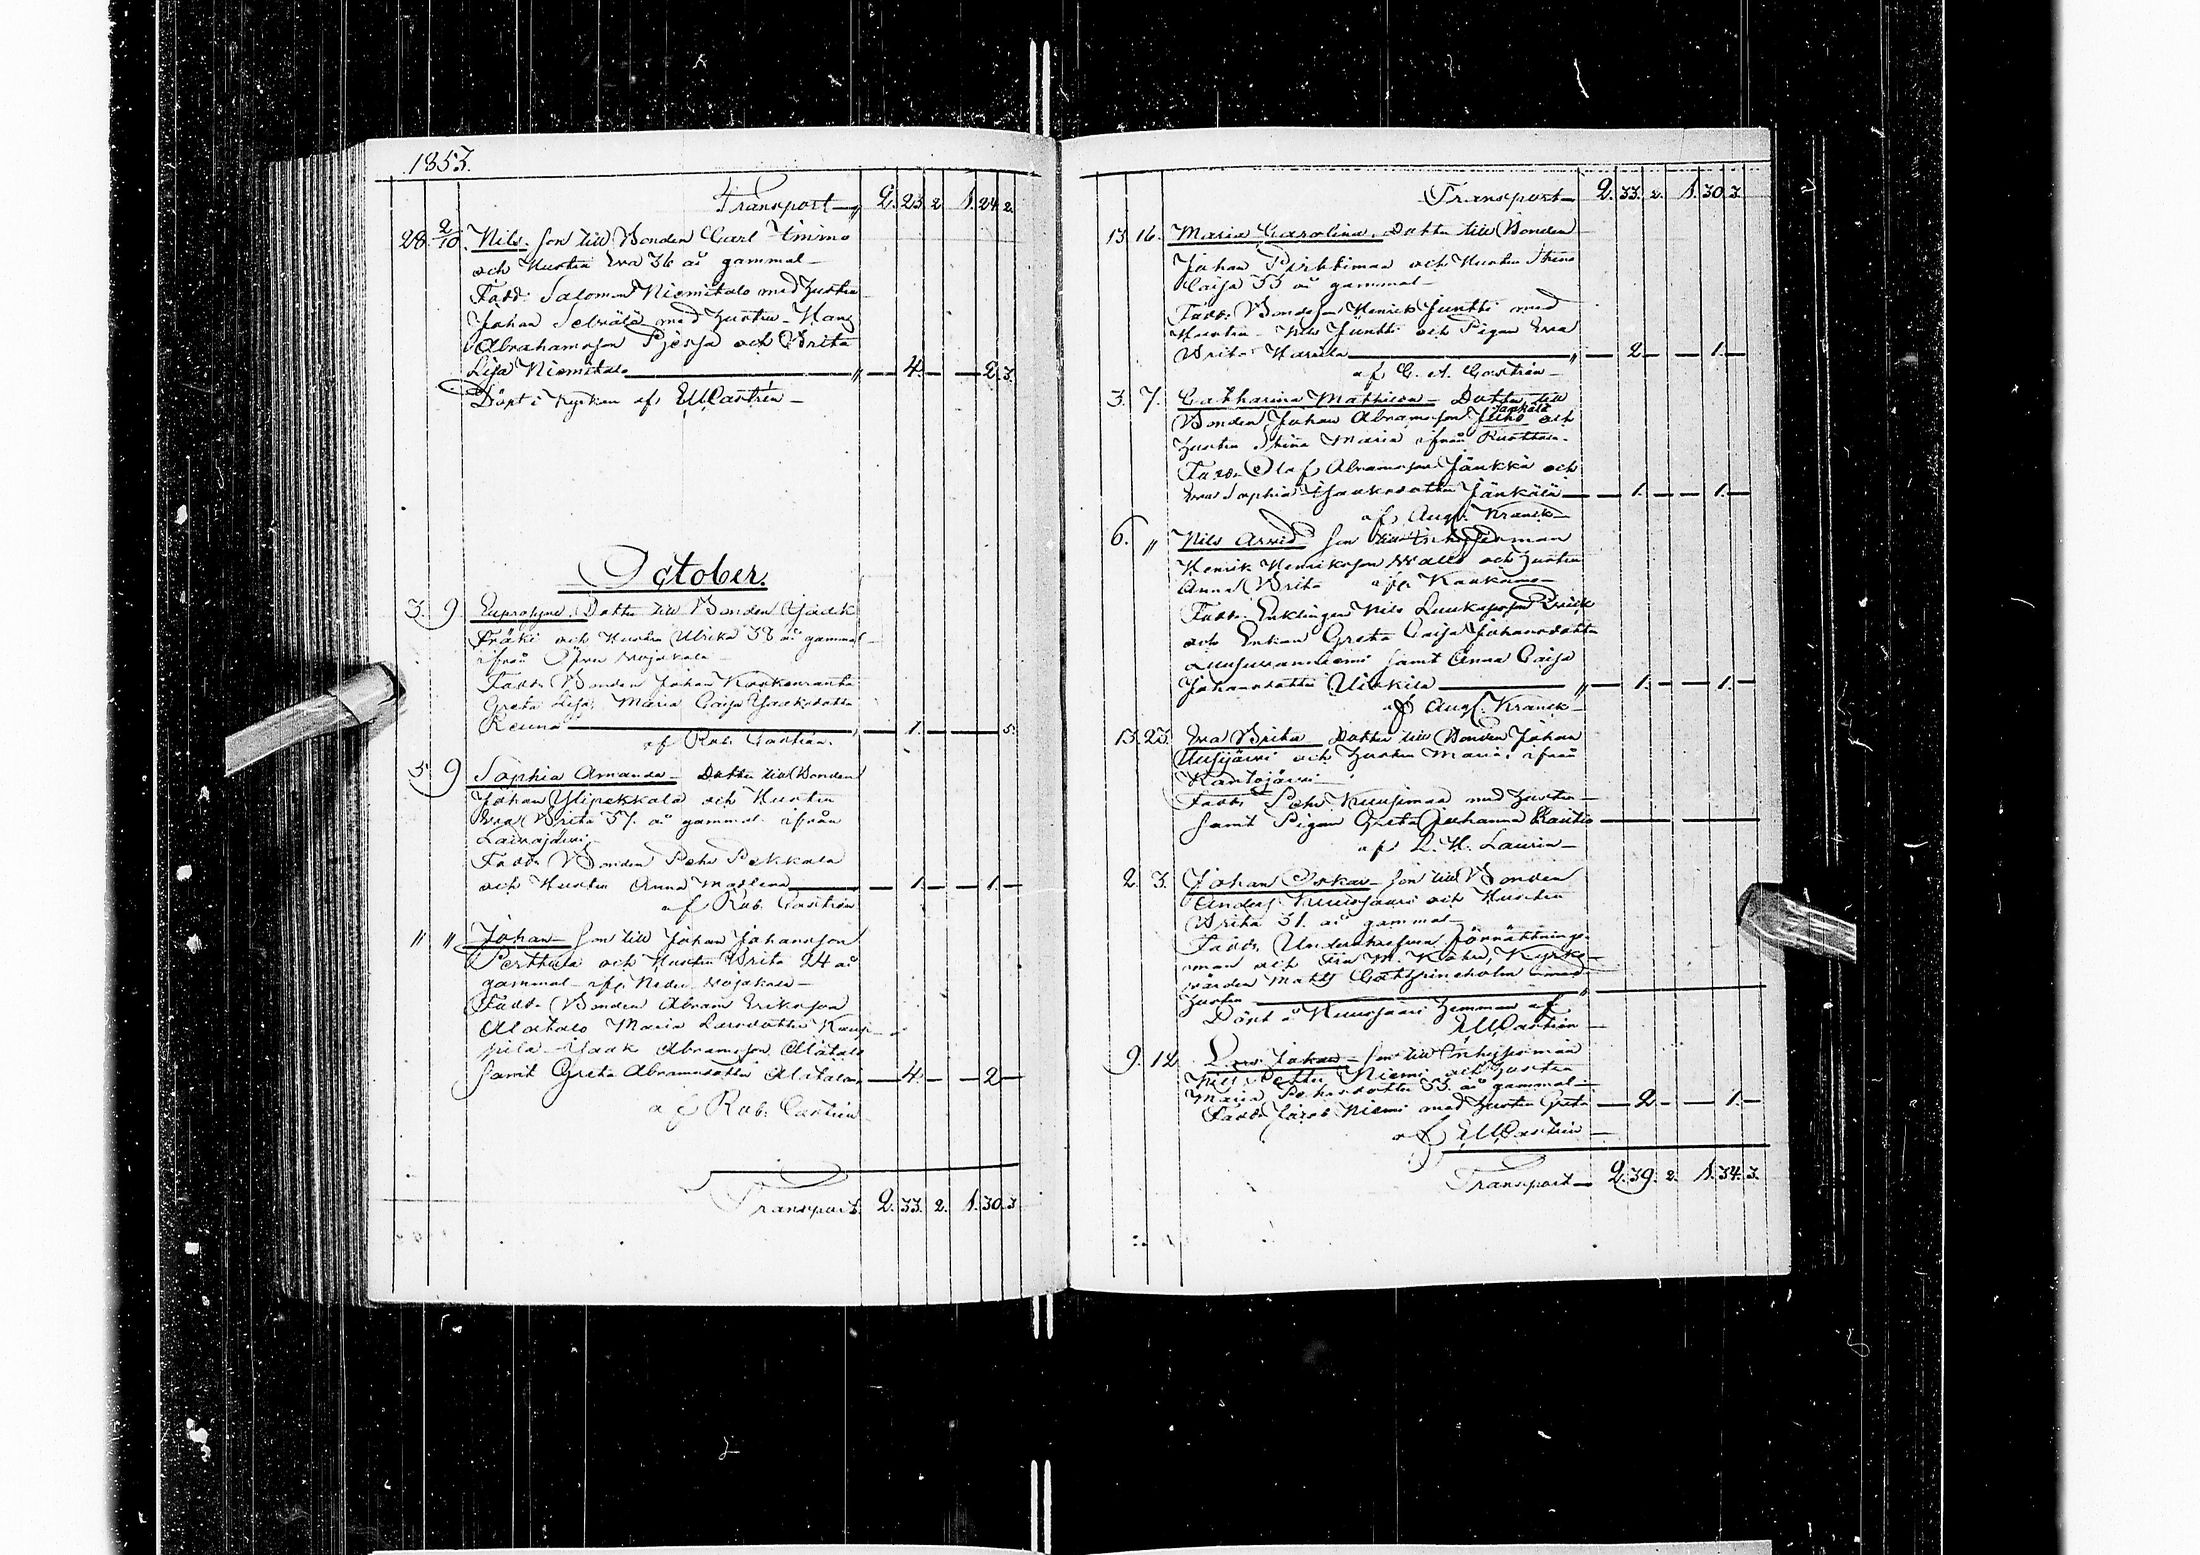 1853.
Transport 2. 23. 2. 1. 24. 2.
28. 2/10. Nils. Son till Bonden Carl Timmo
och Hustru Eva 36 år gammal
Fadd: Salomon Niemitalo med hustru
Johan med hustru Hans
Abrahamsson och Brita
Lisa Niemitalo 4. 2. 3.
Döpt i Kyrkan af EMCastrén
October.
3. 9. Euprosyne. Dotter till Bonden Isack
och Hustru Ulrika 38 år gammal
ifrån Öfver Wojakala
Fadd: Bonden Johan Koskenranta
Greta Lisa, Maria Caisa Isaksdotter
1. 5.
af Rob. Castrén.
5. 9. Sophia Amanda Dotter till Bonden
Johan Ylipekkala och Hustru
Eva Brita 37. år gammal ifrån
Laivajärvi
Fadd: Bonden Petter Pekkala
och Hustru Anna Madlena 1. 1.
af Rob. Castrén
" " Johan Son till Johan Johansson
Perttula och Hustru Brita 24 år
gammal ifr. Neder Wojakala
Fadd: Bonden Abram Eriksson
Alatalo Maria Larsdotter Kaup-
pila Isaak Abramsson Alatalo
samt Greta Abramsdotter Alatalo 4. 2
af Rob. Castrén
Transport 2. 33. 2. 1. 30. 3
Transport 2. 33. 2. 1. 30. 3.
13. 16. Maria Carolina. Dotter till Bonden
Johan Pirttimaa och Hustru Stina
Caisa 33 år gammal
Fadd: Bondeson Henrik Juntti med
Hustru Nils Juntti och Pigan Eva
Brita 2 1.
af C. A. Castrén
3. 7. Catharina Mathilda Dotter till
Bonden Johan Abramsson Juho Jankälä och
hustru Stina Maria ifrån
Fadd: Olof Abramsson Jänkkä och
Eva Sophia Isaaksdotter Jänkälä 1. 1.
af Aug. Kranck
6. " Nils Arvid Son till Inhysesman
Henrik Henriksson och hustru
Anna Brita ifr. Kaakamo
Fadd: Enklingen Nils
och Enkan Greta Caisa Johansdotter
samt Anna Caisa
Johansdotter Uitkila 1. 1.
af Aug. Kranck
13. 23. Eva Brita Dotter till Bonden Johan
och hustru Maria ifrån
Kantojärvi
Fadd: Petter Kuusimaa med hustru
samt Pigan Greta Johanna Rautio
af L. H. Laurin
2. 3. Johan Oskar Son till Bonden
Anders och Hustru
Brita 31. år gammal
Fadd: Underskrifven förrättnings-
man och Fru M. Kyrko-
värden Matts med
hustru
Döpt å hemman af
EMCastrén
9. 12. Johan Son till Inhysesman
Nils Petter Niemi och hustru
Maria 33. år gammal
Fadd: Jacob Niemi med hustru Greta 2. 1.
af EMCastrén
Transport 2. 39. 2. 1. 34. 3.